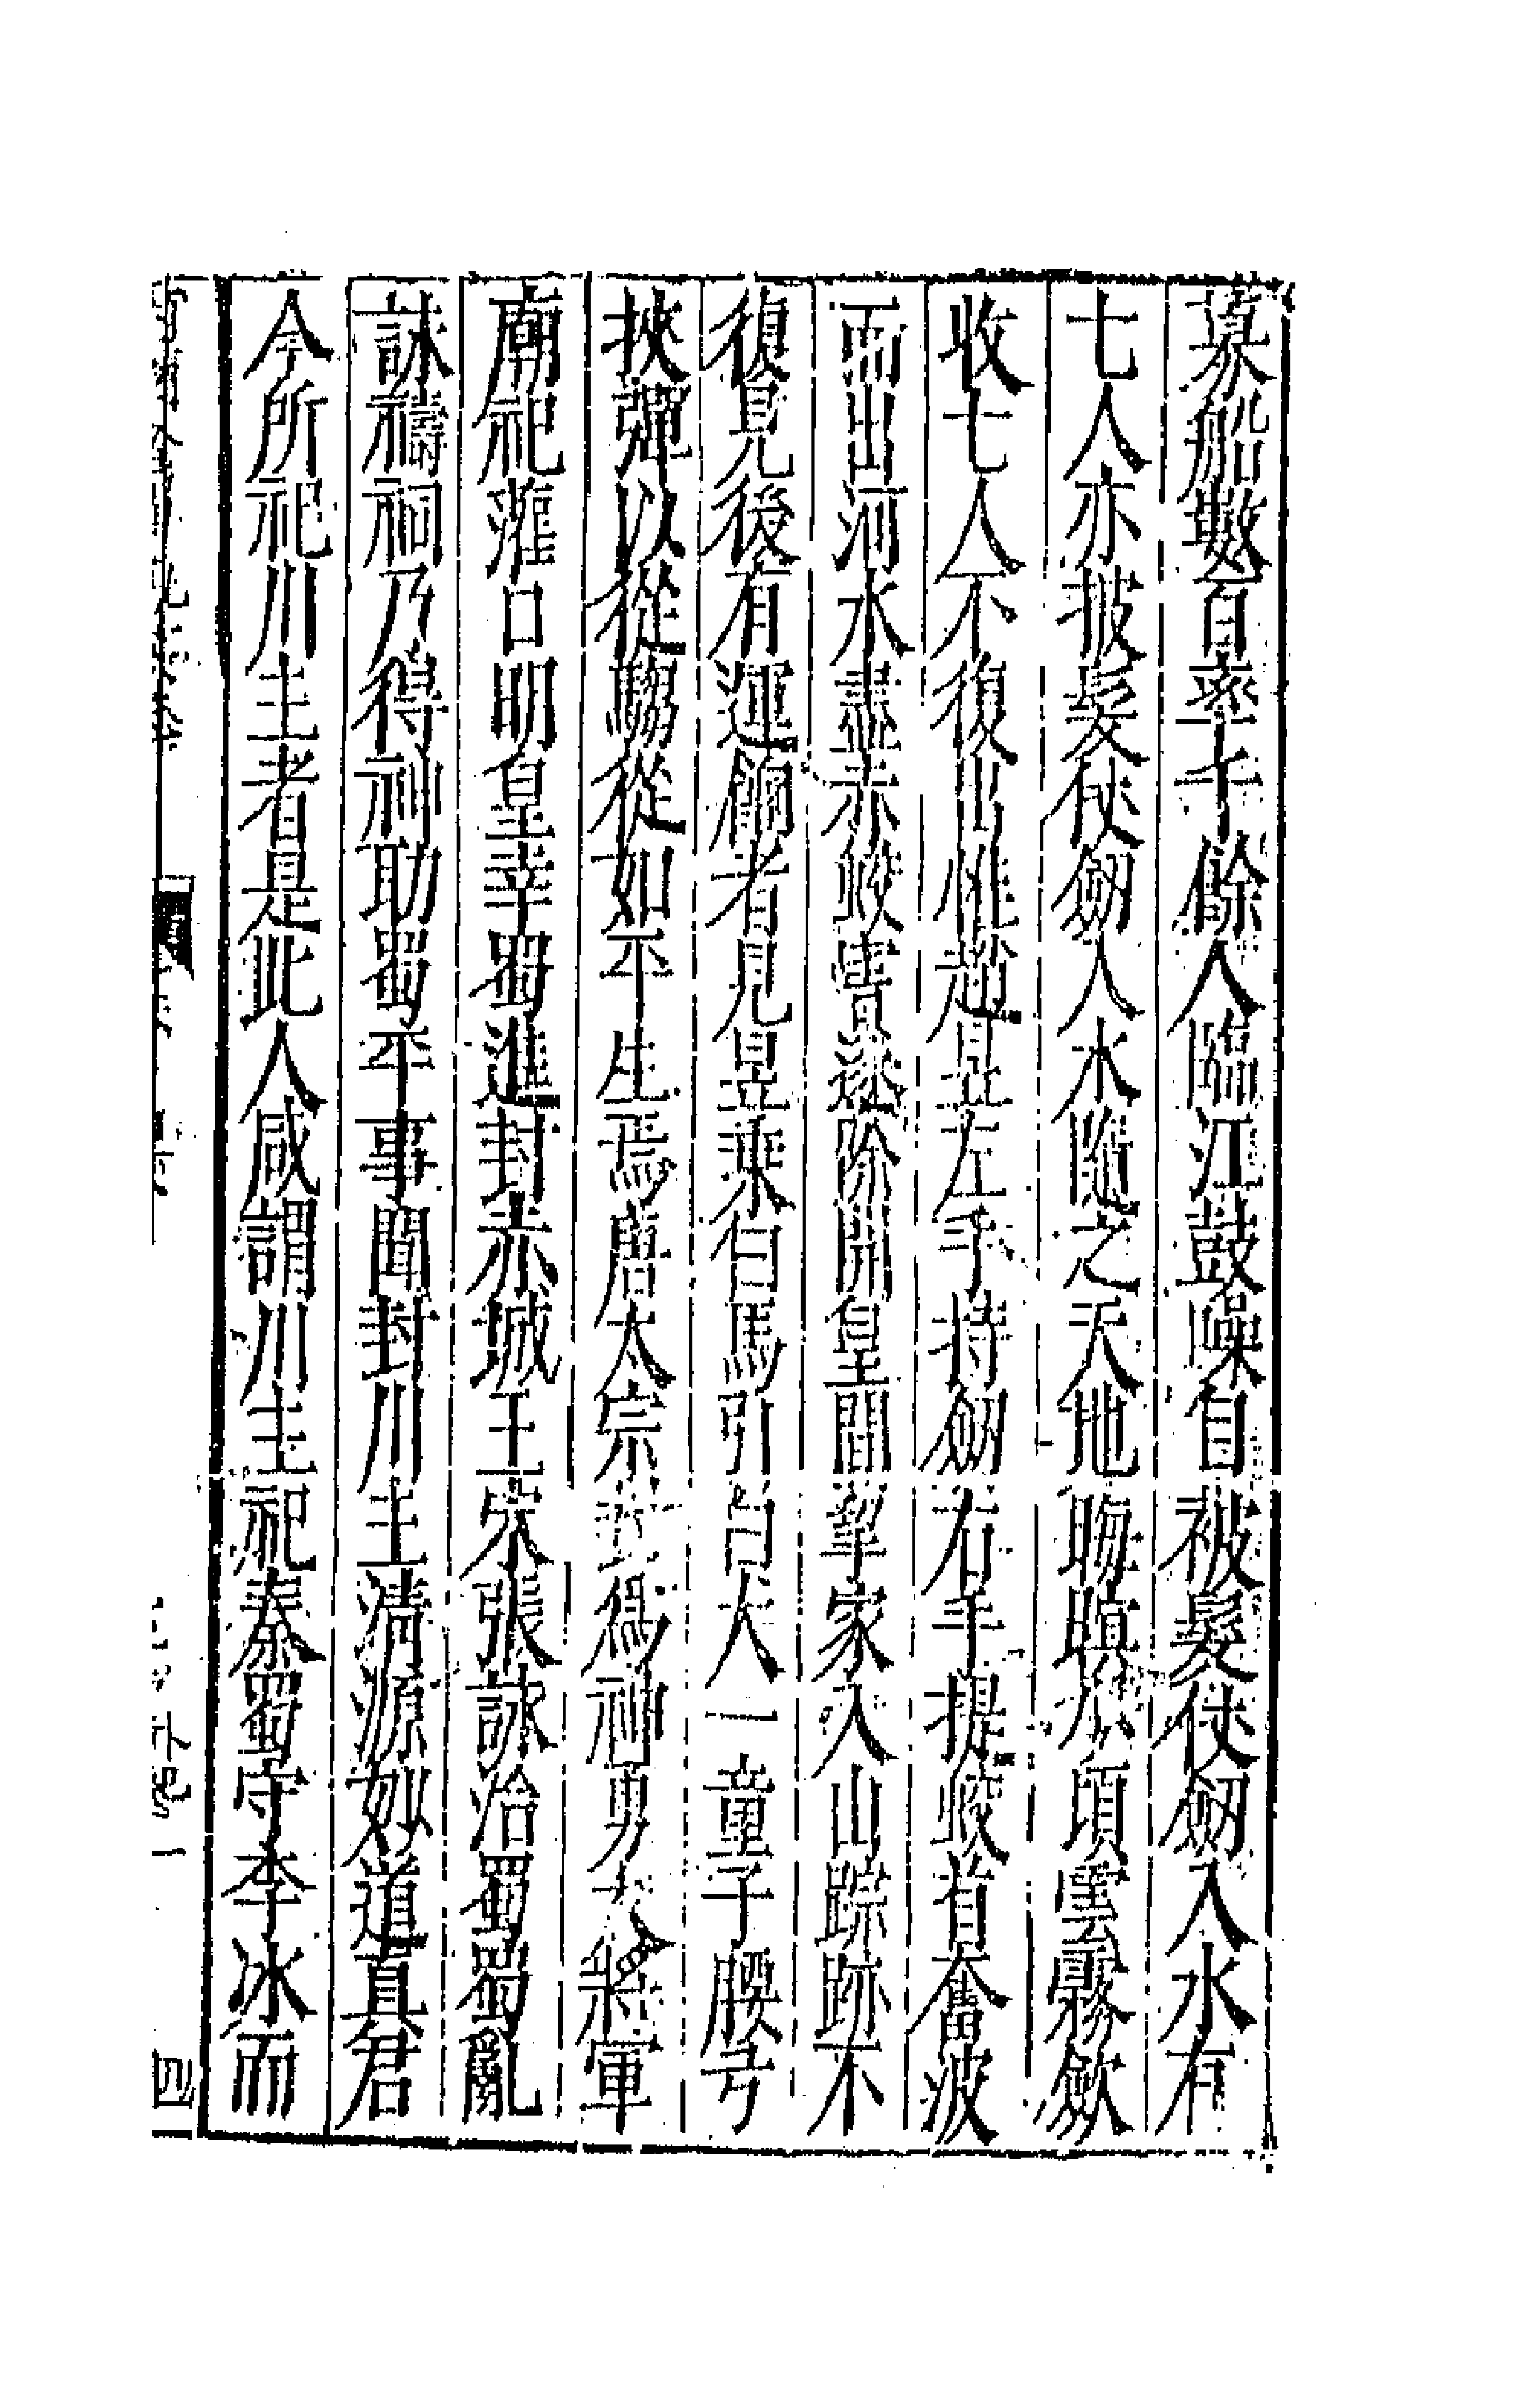 募船數百率千餘人臨江鼓噪自被髮仗劒入水有
七人亦披髮仗劒入水隨之天地晦暝少頃雲霧歛
收七人不復出惟趙昱左手持劒右手提蛟首奮波
而出河水盡赤蛟害遂除開皇間挈家入山踪跡不
復見後有運餉者見昱乘白馬引白犬一童子腰弓
挾彈以從騶從如平生焉唐太宗封為神勇大將軍
廟祀灌口明皇幸蜀進封赤城王宋張詠治蜀蜀亂
詠禱祠乃得神助蜀平事聞封川主清源妙道真君
今所祀川主者是此人咸謂川主祀秦蜀守李冰而
四